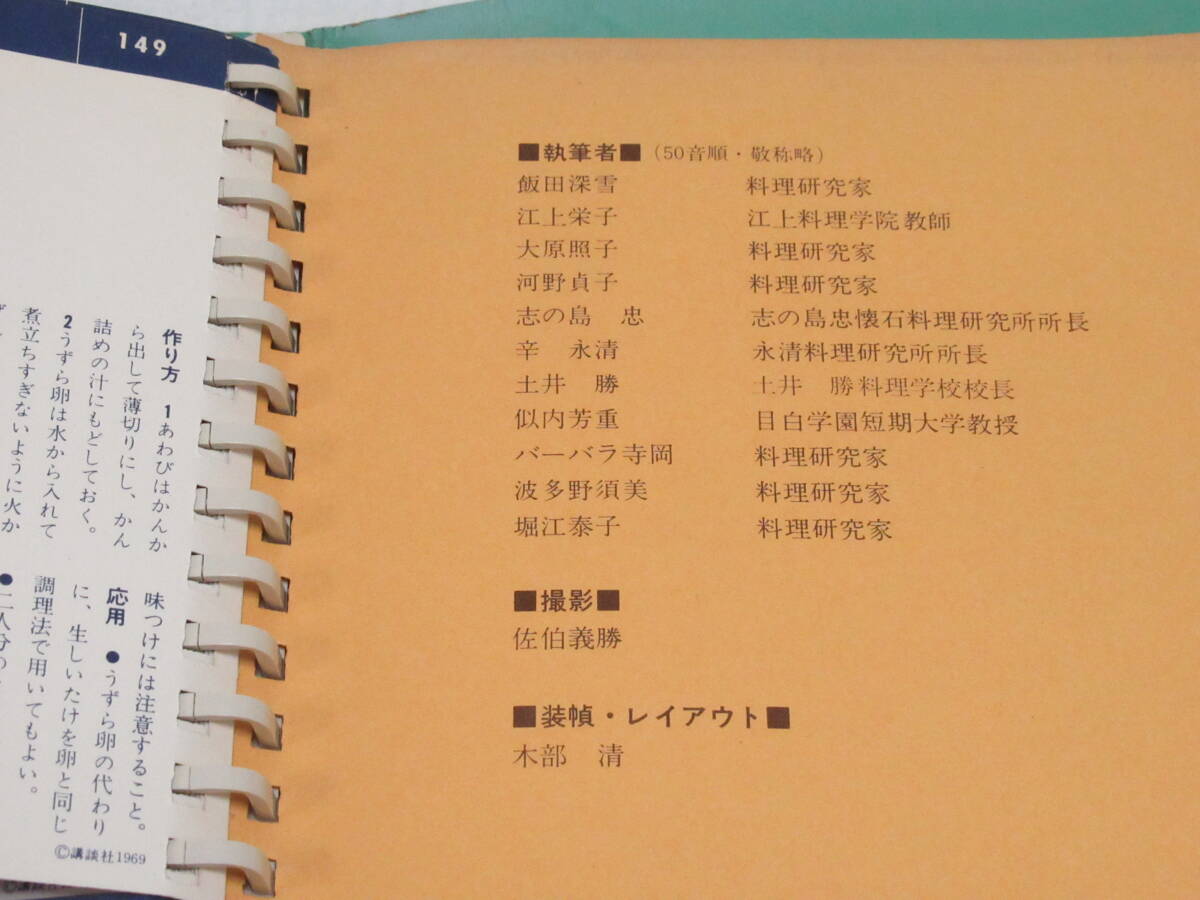 149
作り方 1あわびはかんか
ら出して薄切りにし、かん
詰めの汁にもどしておく。
2うずら卵は水から入れて
煮立ちすぎないように火か
味つけには注意すること。
応用 ●うずら卵の代わり
に、生しいたけを卵と同じ
調理法で用いてもよい。
●二人分の
©講談社1969
©講談社
■執筆者■(50音順・敬称略)
飯田深雪 料理研究家
江上栄子 江上料理学院教師
大原照子 料理研究家
河野貞子 料理研究家
志の島 忠 志の島忠懐石料理研究所所長
辛 永清 永清料理研究所所長
土井 勝 土井 勝料理学校校長
似内芳重 目白学園短期大学教授
バーバラ寺岡 料理研究家
波多野須美 料理研究家
堀江泰子 料理研究家
■撮影■
佐伯義勝
■装幀・レイアウト■
木部 清